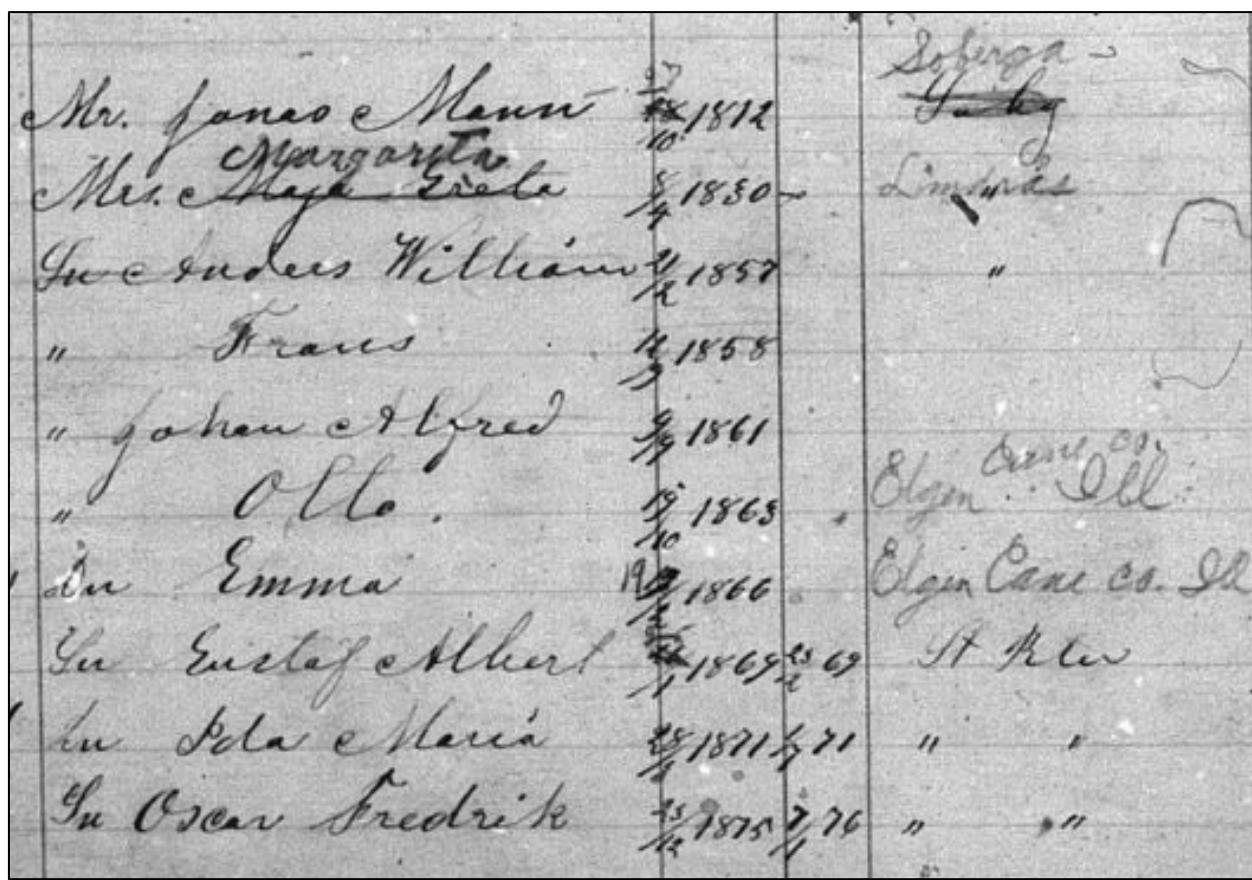 Soberga -
Mr. Jonas Mann 27/10 1812
Margareta
Mrs. Maja Greta 8/4 1830 - Limdnäs "
Sn Anders William 21/2 1857 "
" Frans 12/3 1858
" Johan Alfred 9/9 1861
Cane co.
" Otto. 19/10 1863 Elgen Ill
Du Emma 19 1866 Elgen Cane co. Ill
Sn Gustaf Albert 1869 23/2 69 St Peter
Du Ida Maria 28 1871 71 " "
Sn Oscar Fredrik 25/12 1875 7/1 76 " "